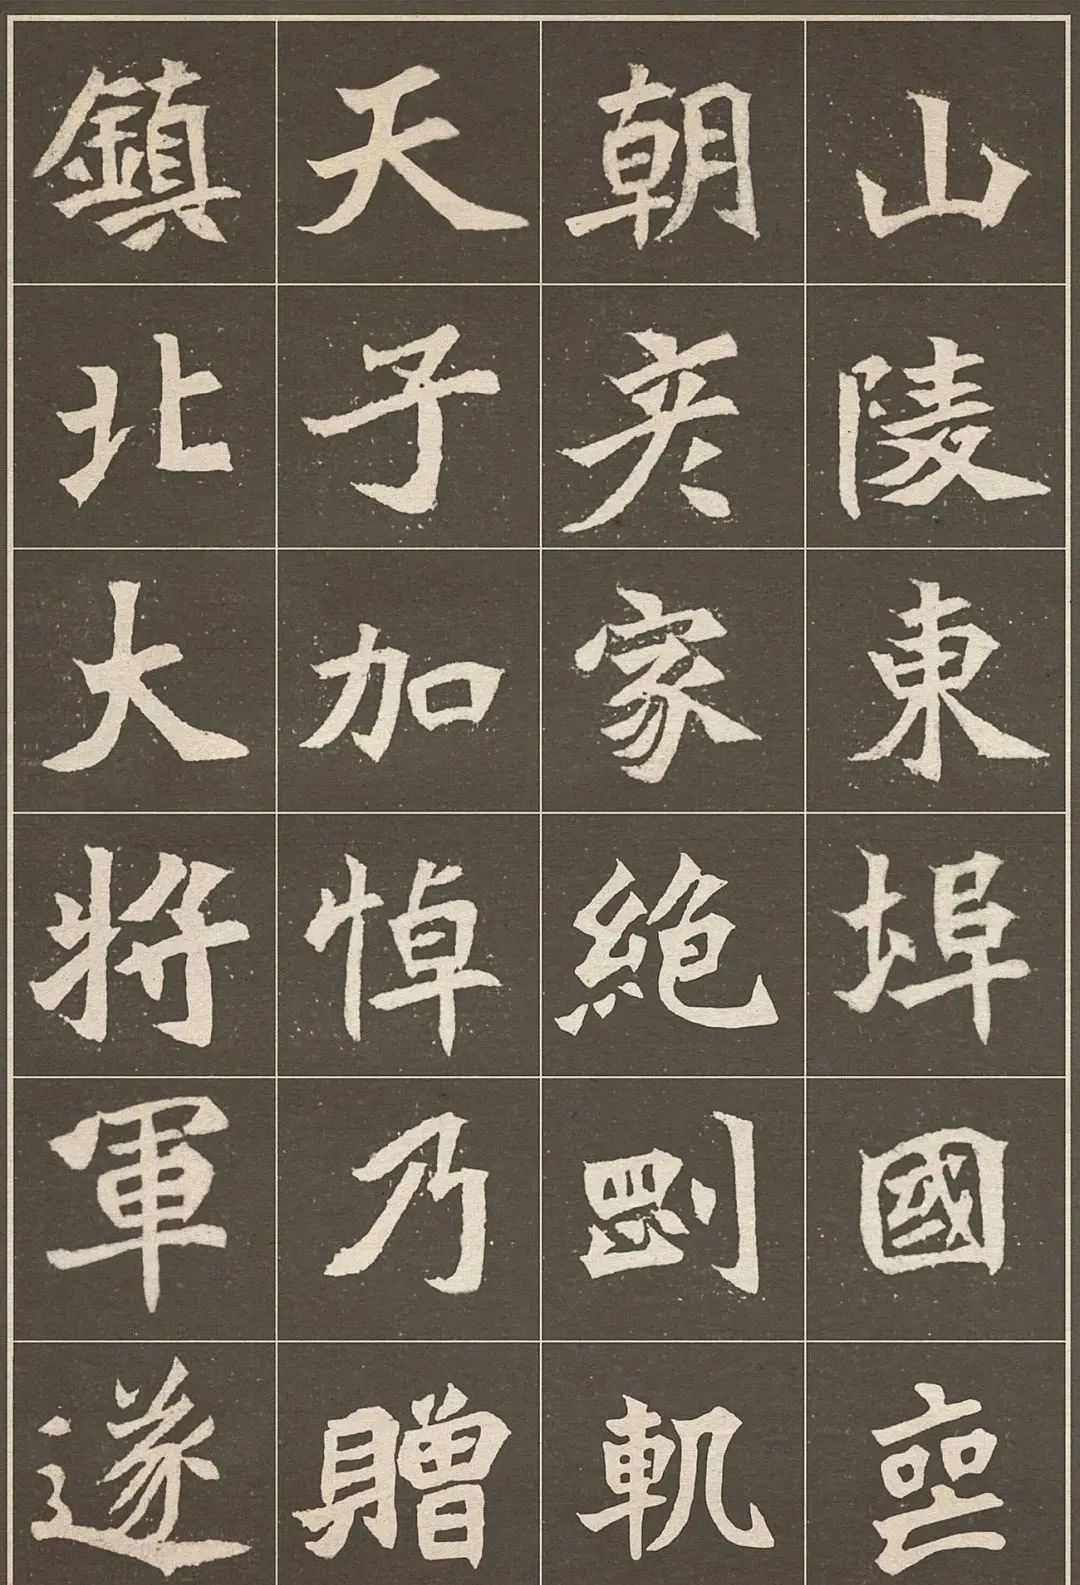 山陵東埠國喪
朝彦家絶剛軌
天子加悼乃贈
鎮北大將軍遂